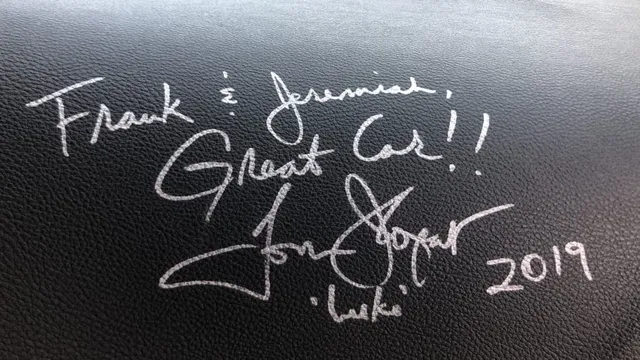 Frank & Jeremiah,
Great Car!!
Tom Wopat
'Luke'
2019